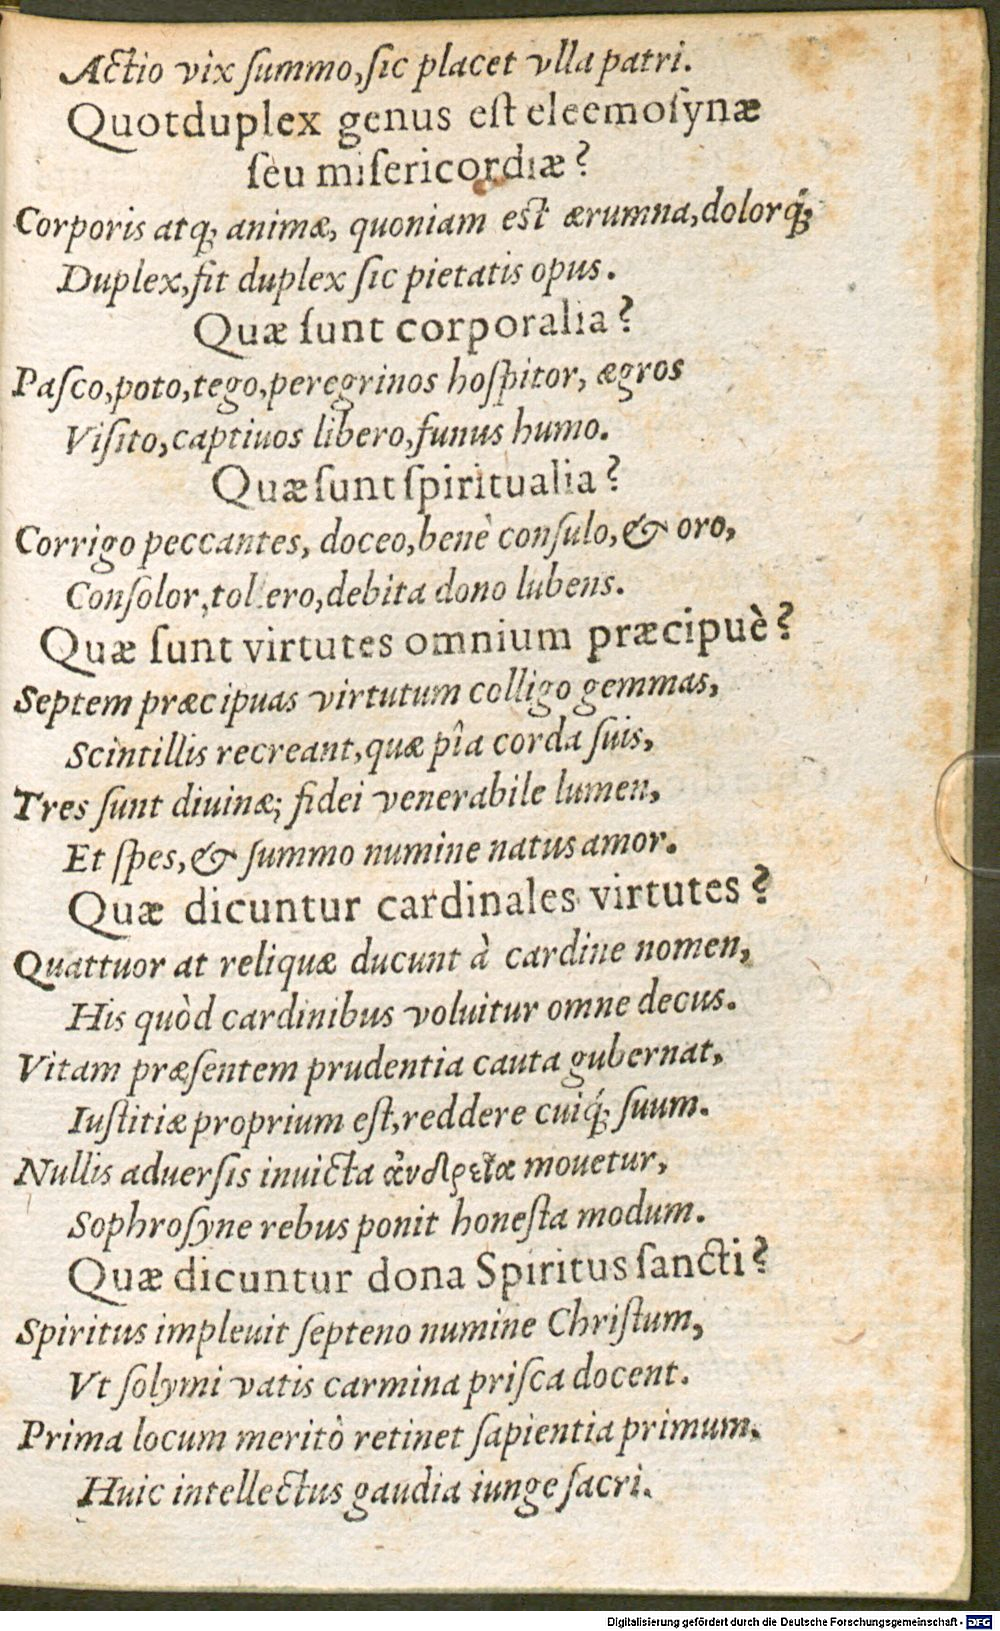 Actio vix ſummo, ſic placet vlla patri.
Quotduplex genus eſt eleemoſynæ
ſeu miſericordiæ?
Corporis atq; animæ, quoniam eſt ærumna, dolorq́;
Duplex, fit duplex ſic pietatis opus.
Quæ ſunt corporalia?
Paſco, poto, tego, peregrinos hoſpitor, ægros
Viſito, captiuos libero, funus humo.
Quæ ſunt ſpiritualia?
Corrigo peccantes, doceo, benè conſulo, & oro,
Conſolor, tolero, debita dono lubens.
Quæ ſunt virtutes omnium præcipuè?
Septem præcipuas virtutum colligo gemmas,
Scintillis recreant, quæ pîa corda ſuis,
Tres ſunt diuinæ; fidei venerabile lumen,
Et ſpes, & ſummo numine natus amor.
Quæ dicuntur cardinales virtutes?
Quattuor at reliquæ ducunt à cardine nomen,
His quòd cardinibus voluitur omne decus.
Vitam præſentem prudentia cauta gubernat,
Iuſtitiæ proprium eſt, reddere cuiq́; ſuum.
Nullis aduerſis inuicta ἀνδρεία mouetur,
Sophroſyne rebus ponit honeſta modum.
Quæ dicuntur dona Spiritus ſancti?
Spiritus impleuit ſepteno numine Chriſtum,
Vt ſolymi vatis carmina priſca docent.
Prima locum meritò retinet ſapientia primum.
Huic intellectus gaudia iunge ſacri.
Digitalisierung gefördert durch die Deutsche Forschungsgemeinschaft - DFG